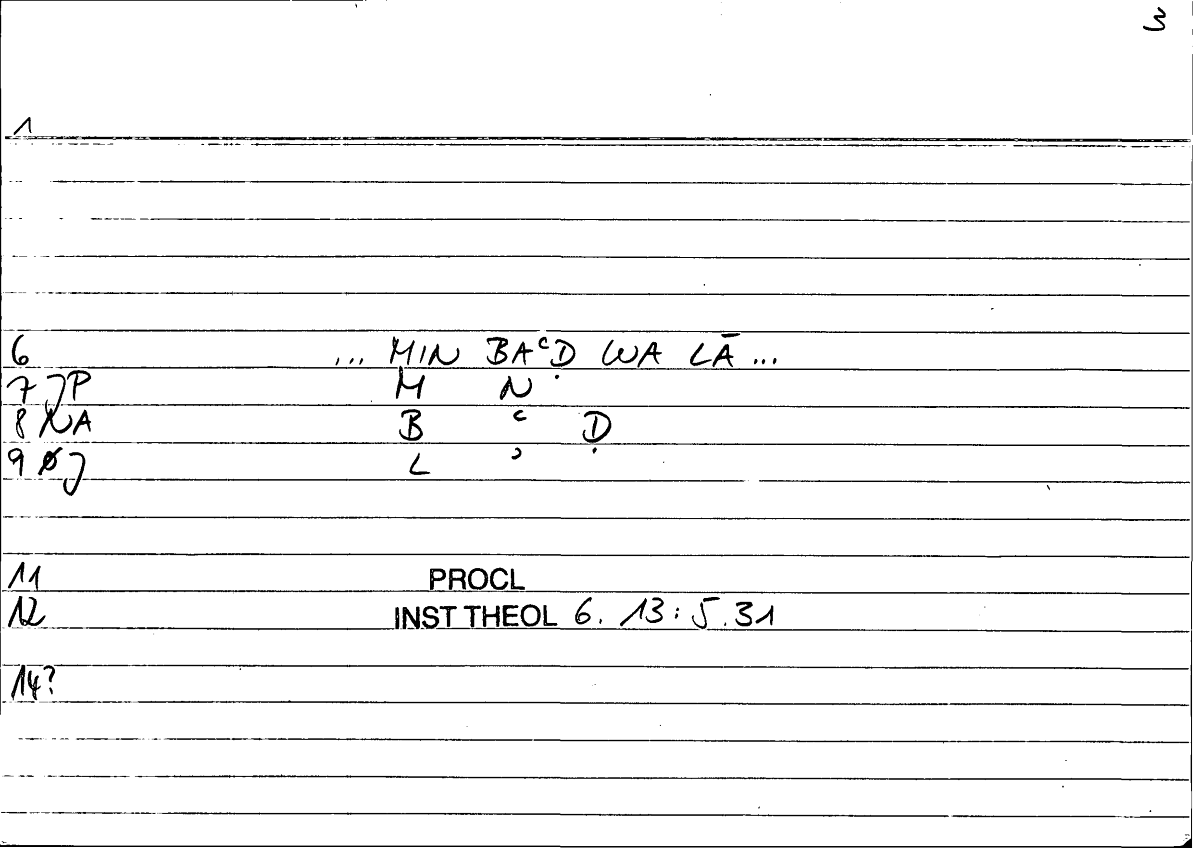 3
1
6 ... MIN BAᶜḌ WA LĀ ...
7 JP M N
8 NA B ᶜ Ḍ
9 ØJ L ʾ
11 PROCL
12 INST THEOL 6. 13:5.31
14?